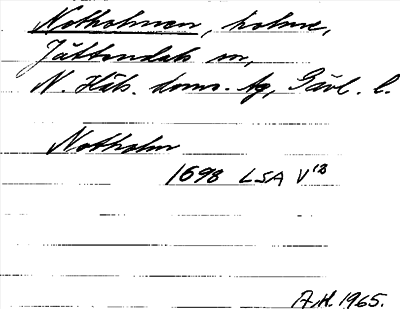 Notholmen, holme,
Jättendals sn,
N. Häls. doms. tg, Gävl. l.
Notholm
1698 LSA V 12
A.H. 1965.